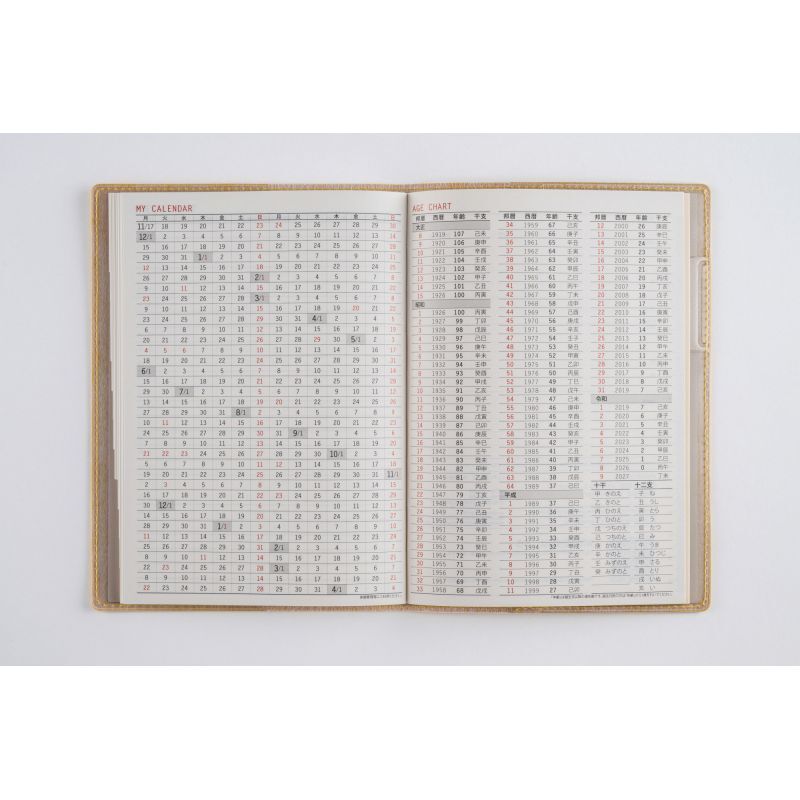 MY CALENDAR
月 火 水 木 金 土 日 月 火 水 木 金 土 日
11/17 18 19 20 21 22 23 24 25 26 27 28 29 30
12/1 2 3 4 5 6 7 8 9 10 11 12 13 14
15 16 17 18 19 20 21 22 23 24 25 26 27 28
29 30 31 1/1 2 3 4 5 6 7 8 9 10 11
12 13 14 15 16 17 18 19 20 21 22 23 24 25
26 27 28 29 30 31 2/1 2 3 4 5 6 7 8
9 10 11 12 13 14 15 16 17 18 19 20 21 22
23 24 25 26 27 28 3/1 2 3 4 5 6 7 8
9 10 11 12 13 14 15 16 17 18 19 20 21 22
23 24 25 26 27 28 29 30 31 4/1 2 3 4 5
6 7 8 9 10 11 12 13 14 15 16 17 18 19
20 21 22 23 24 25 26 27 28 29 30 5/1 2 3
4 5 6 7 8 9 10 11 12 13 14 15 16 17
18 19 20 21 22 23 24 25 26 27 28 29 30 31
6/1 2 3 4 5 6 7 8 9 10 11 12 13 14
15 16 17 18 19 20 21 22 23 24 25 26 27 28
29 30 7/1 2 3 4 5 6 7 8 9 10 11 12
13 14 15 16 17 18 19 20 21 22 23 24 25 26
27 28 29 30 31 8/1 2 3 4 5 6 7 8 9
10 11 12 13 14 15 16 17 18 19 20 21 22 23
24 25 26 27 28 29 30 31 9/1 2 3 4 5 6
7 8 9 10 11 12 13 14 15 16 17 18 19 20
21 22 23 24 25 26 27 28 29 30 10/1 2 3 4
5 6 7 8 9 10 11 12 13 14 15 16 17 18
19 20 21 22 23 24 25 26 27 28 29 30 31 11/1
2 3 4 5 6 7 8 9 10 11 12 13 14 15
16 17 18 19 20 21 22 23 24 25 26 27 28 29
30 12/1 2 3 4 5 6 7 8 9 10 11 12 13
14 15 16 17 18 19 20 21 22 23 24 25 26 27
28 29 30 31 1/1 2 3 4 5 6 7 8 9 10
11 12 13 14 15 16 17 18 19 20 21 22 23 24
25 26 27 28 29 30 31 2/1 2 3 4 5 6 7
8 9 10 11 12 13 14 15 16 17 18 19 20 21
22 23 24 25 26 27 28 3/1 2 3 4 5 6 7
8 9 10 11 12 13 14 15 16 17 18 19 20 21
22 23 24 25 26 27 28 29 30 31 4/1 2 3 4
AGE CHART
邦暦 西暦 年齢 干支
大正
8 1919 107 己未
9 1920 106 庚申
10 1921 105 辛酉
11 1922 104 壬戌
12 1923 103 癸亥
13 1924 102 甲子
14 1925 101 乙丑
15 1926 100 丙寅
昭和
1 1926 100 丙寅
2 1927 99 丁卯
3 1928 98 戊辰
4 1929 97 己巳
5 1930 96 庚午
6 1931 95 辛未
7 1932 94 壬申
8 1933 93 癸酉
9 1934 92 甲戌
10 1935 91 乙亥
11 1936 90 丙子
12 1937 89 丁丑
13 1938 88 戊寅
14 1939 87 己卯
15 1940 86 庚辰
16 1941 85 辛巳
17 1942 84 壬午
18 1943 83 癸未
19 1944 82 甲申
20 1945 81 乙酉
21 1946 80 丙戌
22 1947 79 丁亥
23 1948 78 戊子
24 1949 77 己丑
25 1950 76 庚寅
26 1951 75 辛卯
27 1952 74 壬辰
28 1953 73 癸巳
29 1954 72 甲午
30 1955 71 乙未
31 1956 70 丙申
32 1957 69 丁酉
33 1958 68 戊戌
邦暦 西暦 年齢 干支
34 1959 67 己亥
35 1960 66 庚子
36 1961 65 辛丑
37 1962 64 壬寅
38 1963 63 癸卯
39 1964 62 甲辰
40 1965 61 乙巳
41 1966 60 丙午
42 1967 59 丁未
43 1968 58 戊申
44 1969 57 己酉
45 1970 56 庚戌
46 1971 55 辛亥
47 1972 54 壬子
48 1973 53 癸丑
49 1974 52 甲寅
50 1975 51 乙卯
51 1976 50 丙辰
52 1977 49 丁巳
53 1978 48 戊午
54 1979 47 己未
55 1980 46 庚申
56 1981 45 辛酉
57 1982 44 壬戌
58 1983 43 癸亥
59 1984 42 甲子
60 1985 41 乙丑
61 1986 40 丙寅
62 1987 39 丁卯
63 1988 38 戊辰
64 1989 37 己巳
平成
1 1989 37 己巳
2 1990 36 庚午
3 1991 35 辛未
4 1992 34 壬申
5 1993 33 癸酉
6 1994 32 甲戌
7 1995 31 乙亥
8 1996 30 丙子
9 1997 29 丁丑
10 1998 28 戊寅
11 1999 27 己卯
邦暦 西暦 年齢 干支
12 2000 26 庚辰
13 2001 25 辛巳
14 2002 24 壬午
15 2003 23 癸未
16 2004 22 甲申
17 2005 21 乙酉
18 2006 20 丙戌
19 2007 19 丁亥
20 2008 18 戊子
21 2009 17 己丑
22 2010 16 庚寅
23 2011 15 辛卯
24 2012 14 壬辰
25 2013 13 癸巳
26 2014 12 甲午
27 2015 11 乙未
28 2016 10 丙申
29 2017 9 丁酉
30 2018 8 戊戌
31 2019 7 己亥
令和
1 2019 7 己亥
2 2020 6 庚子
3 2021 5 辛丑
4 2022 4 壬寅
5 2023 3 癸卯
6 2024 2 甲辰
7 2025 1 乙巳
8 2026 0 丙午
9 2027 丁未
十干 十二支
甲 きのえ 子 ね
乙 きのと 丑 うし
丙 ひのえ 寅 とら
丁 ひのと 卯 う
戊 つちのえ 辰 たつ
己 つちのと 巳 み
庚 かのえ 午 うま
辛 かのと 未 ひつじ
壬 みずのえ 申 さる
癸 みずのと 酉 とり
戌 いぬ
亥 い